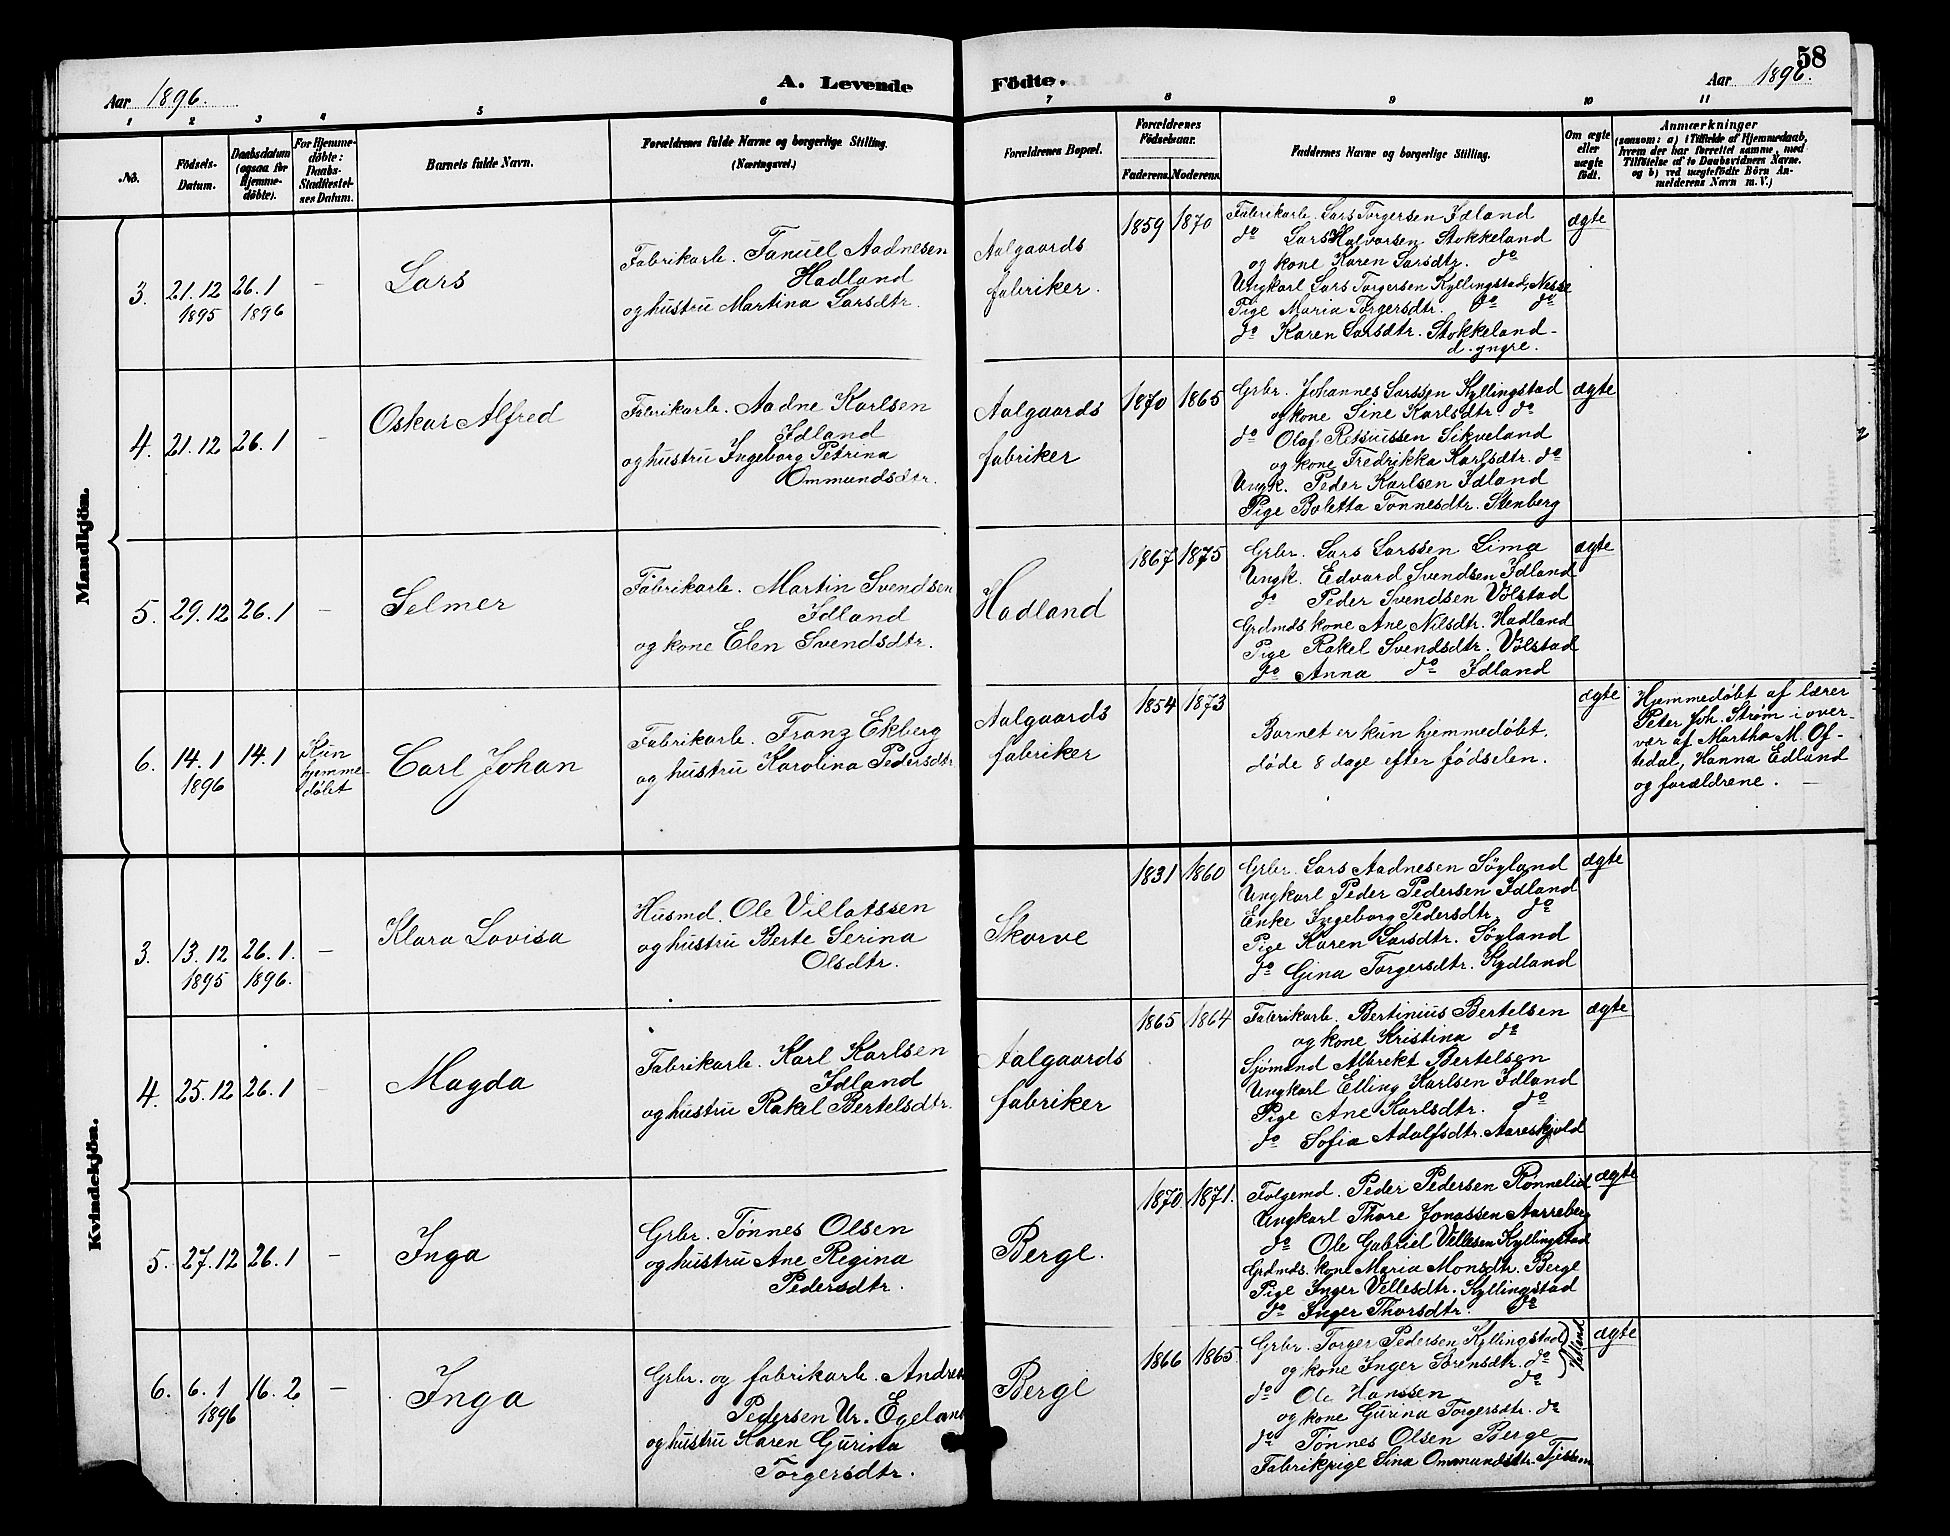 58
Aar 1896.
A. Levende Födte.
Aar 1896.
1 2 3 4 5 6 7 8 9 10 11
No.
Födsels-Datum.
Daabsdatum (ogsaa for Hjemme-döbte).
For Hjemme-döbte: Daabs-Stadfæstel-ses Datum.
Barnets fulde Navn.
Forældrenes fulde Navne og borgerlige Stilling.
(Næringsvei.)
Forældrenes Bopæl.
Forældrenes Födselsaar.
Faderens. Moderens.
Faddernes Navne og borgerlige Stilling.
Om ægte eller uægte födt.
Anmærkninger
(saasom: a) i Tilfælde af Hjemmedaab, hvem der har forrettet samme, med Tilföielse af to Daabsvidners Navne. og b) ved uægtefödte Börn An-melderens Navn m. V.)
Mandkjön.
3. 21.12 1895 26.1 1896 –
Lars
Fabrikarb. Tanuel Aadnesen
Hadland
og hustru Martina Larsdtr.
Aalgaards
fabriker.
1859 1870
Fabrikarb. Lars Torgersen Idland
do Lars Halvorsen Stokkeland
og kone Karen Larsdtr. do
Ungkarl Lars Torgersen Kyllingstad, Nesse
Pige Maria Torgersdtr. do do
do Karen Larsdtr. Stokkeland
d. yngre.
ægte
4. 21.12 26.1 –
Oskar Alfred
Fabrikarb. Aadne Karlsen
Idland
og hustru Ingeborg Petrina
Ommundsdtr.
Aalgaards
fabriker
1870 1865
Grbr. Johannes Larssen Kyllingstad
og kone Sine Karlsdtr. do
do Olaf Sikveland
og kone Fredrikka Karlsdtr. do
Ungk. Peder Karlsen Idland
Pige Boletta Tonnesdtr. Stenberg
ægte
5. 29.12 26.1 –
Selmer
Fabrikarb. Martin Svendsen
Idland
og kone Elen Svendsdtr.
Hadland
1867 1875
Grbr. Lars Larssen Lima
Ungk. Edvard Svendsen Idland
do Peder Svendsen Völstad
Grdmds kone Ane Nilsdtr. Hadland
Pige Rakel Svendsdtr. Völstad
do Anna do Idland
ægte
6. 14.1 1896 14.1
Kun
hjemme-
döbt
Carl Johan
Fabrikarb. Franz Ekberg
og hustru Karolina Pedersdtr
Aalgaards
fabriker
1854 1873
Barnet er kun hjemmedöbt.
döde 8 dage efter födselen.
ægte
Hjemmedöbt af lærer
Peter Joh. Strøm i over-
vær af Martha M. Of-
tedal, Hanna Edland
og forældrene. –
Kvindekjön.
3. 13.12 1895 26.1. 1896. –
Klara Lovisa
Husmd. Ole Villatssen
og hustru Berte Serina
Olsdtr.
Skorve
1831 1860
Grbr. Lars Aadnesen Söyland
Ungkarl Peder Pedersen Idland
Enke Ingeborg Pedersdtr. do
Pige Karen Larsdtr. Söyland
do Gina Torgersdtr. Kydland
ægte
4. 25.12 26.1 –
Magda
Fabrikarb. Karl Karlsen
Idland
og hustru Rakel Bertelsdtr.
Aalgaards
fabriker
1865 1864
Fabrikarb. Bertinius Bertelsen
og kone Kristina do
Sjömand Albrekt Bertelsen
Ungkarl Elling Karlsen Idland
Pige Ane Karlsdtr. do
do Sofia Adolfsdtr. Aareskjold
ægte
5. 27.12 26.1 –
Inga
Grbr. Tønnes Olsen
og hustru Ane Regina
Pedersdtr.
Berge.
1870. 1871.
Folgemd. Peder Pedersen Rönnelid
Ungkarl Thore Jonassen Aarreberg
do Ole Gabriel Villesen Kyllingstad
Grdmds. kone Maria Monsdtr. Berge
Pige Inger Villesdtr. Kyllingstad
do Inger Thorsdtr. do
ægte
6. 6.1 1896 16.2 –
Inga
Grbr. og fabrikarb. Andreas
Pedersen Ur. Egeland
og hustru Karen Gurina
Torgersdtr.
Berge
1866 1865.
Grbr. Torger Pedersen Kyllingstad
og kone Inger Sörensdtr. do
do Ole Hanssen do
og kone Gurina Torgersdtr. do
do Tønnes Olsen Berge
Fabrikpige Sina Ommundsdtr. Tjessem
ægte